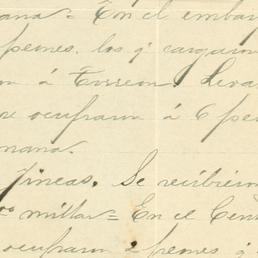 ana = En el embar
peones, los q' cargaron
n á Torreon. Leva
se ocuparon á 6 peo
mana.
fineas. Se recibieron
ros millar = En el Cen
ocuparon 2 peones, q'